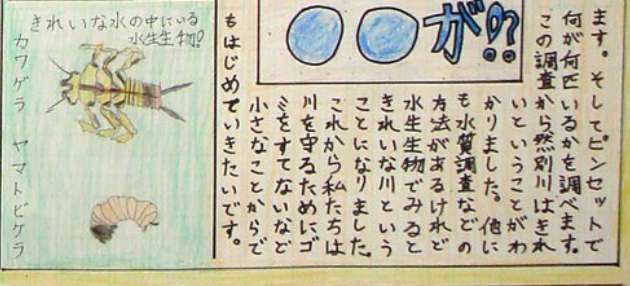 ○○が!?
ます。そしてピンセットで
何が何匹いるかを調べます。
この調査から然別川はきれ
いということがわ
かりました。他に
も水質調査などの
方法があるけれど
水生生物でみると
きれいな川という
ことになりました。
これから私たちは
川を守るためにゴ
ミをすてないなど
小さなことからで
もはじめていきたいです。
きれいな水の中にいる
水生生物!
カワゲラ
ヤマトビケラ